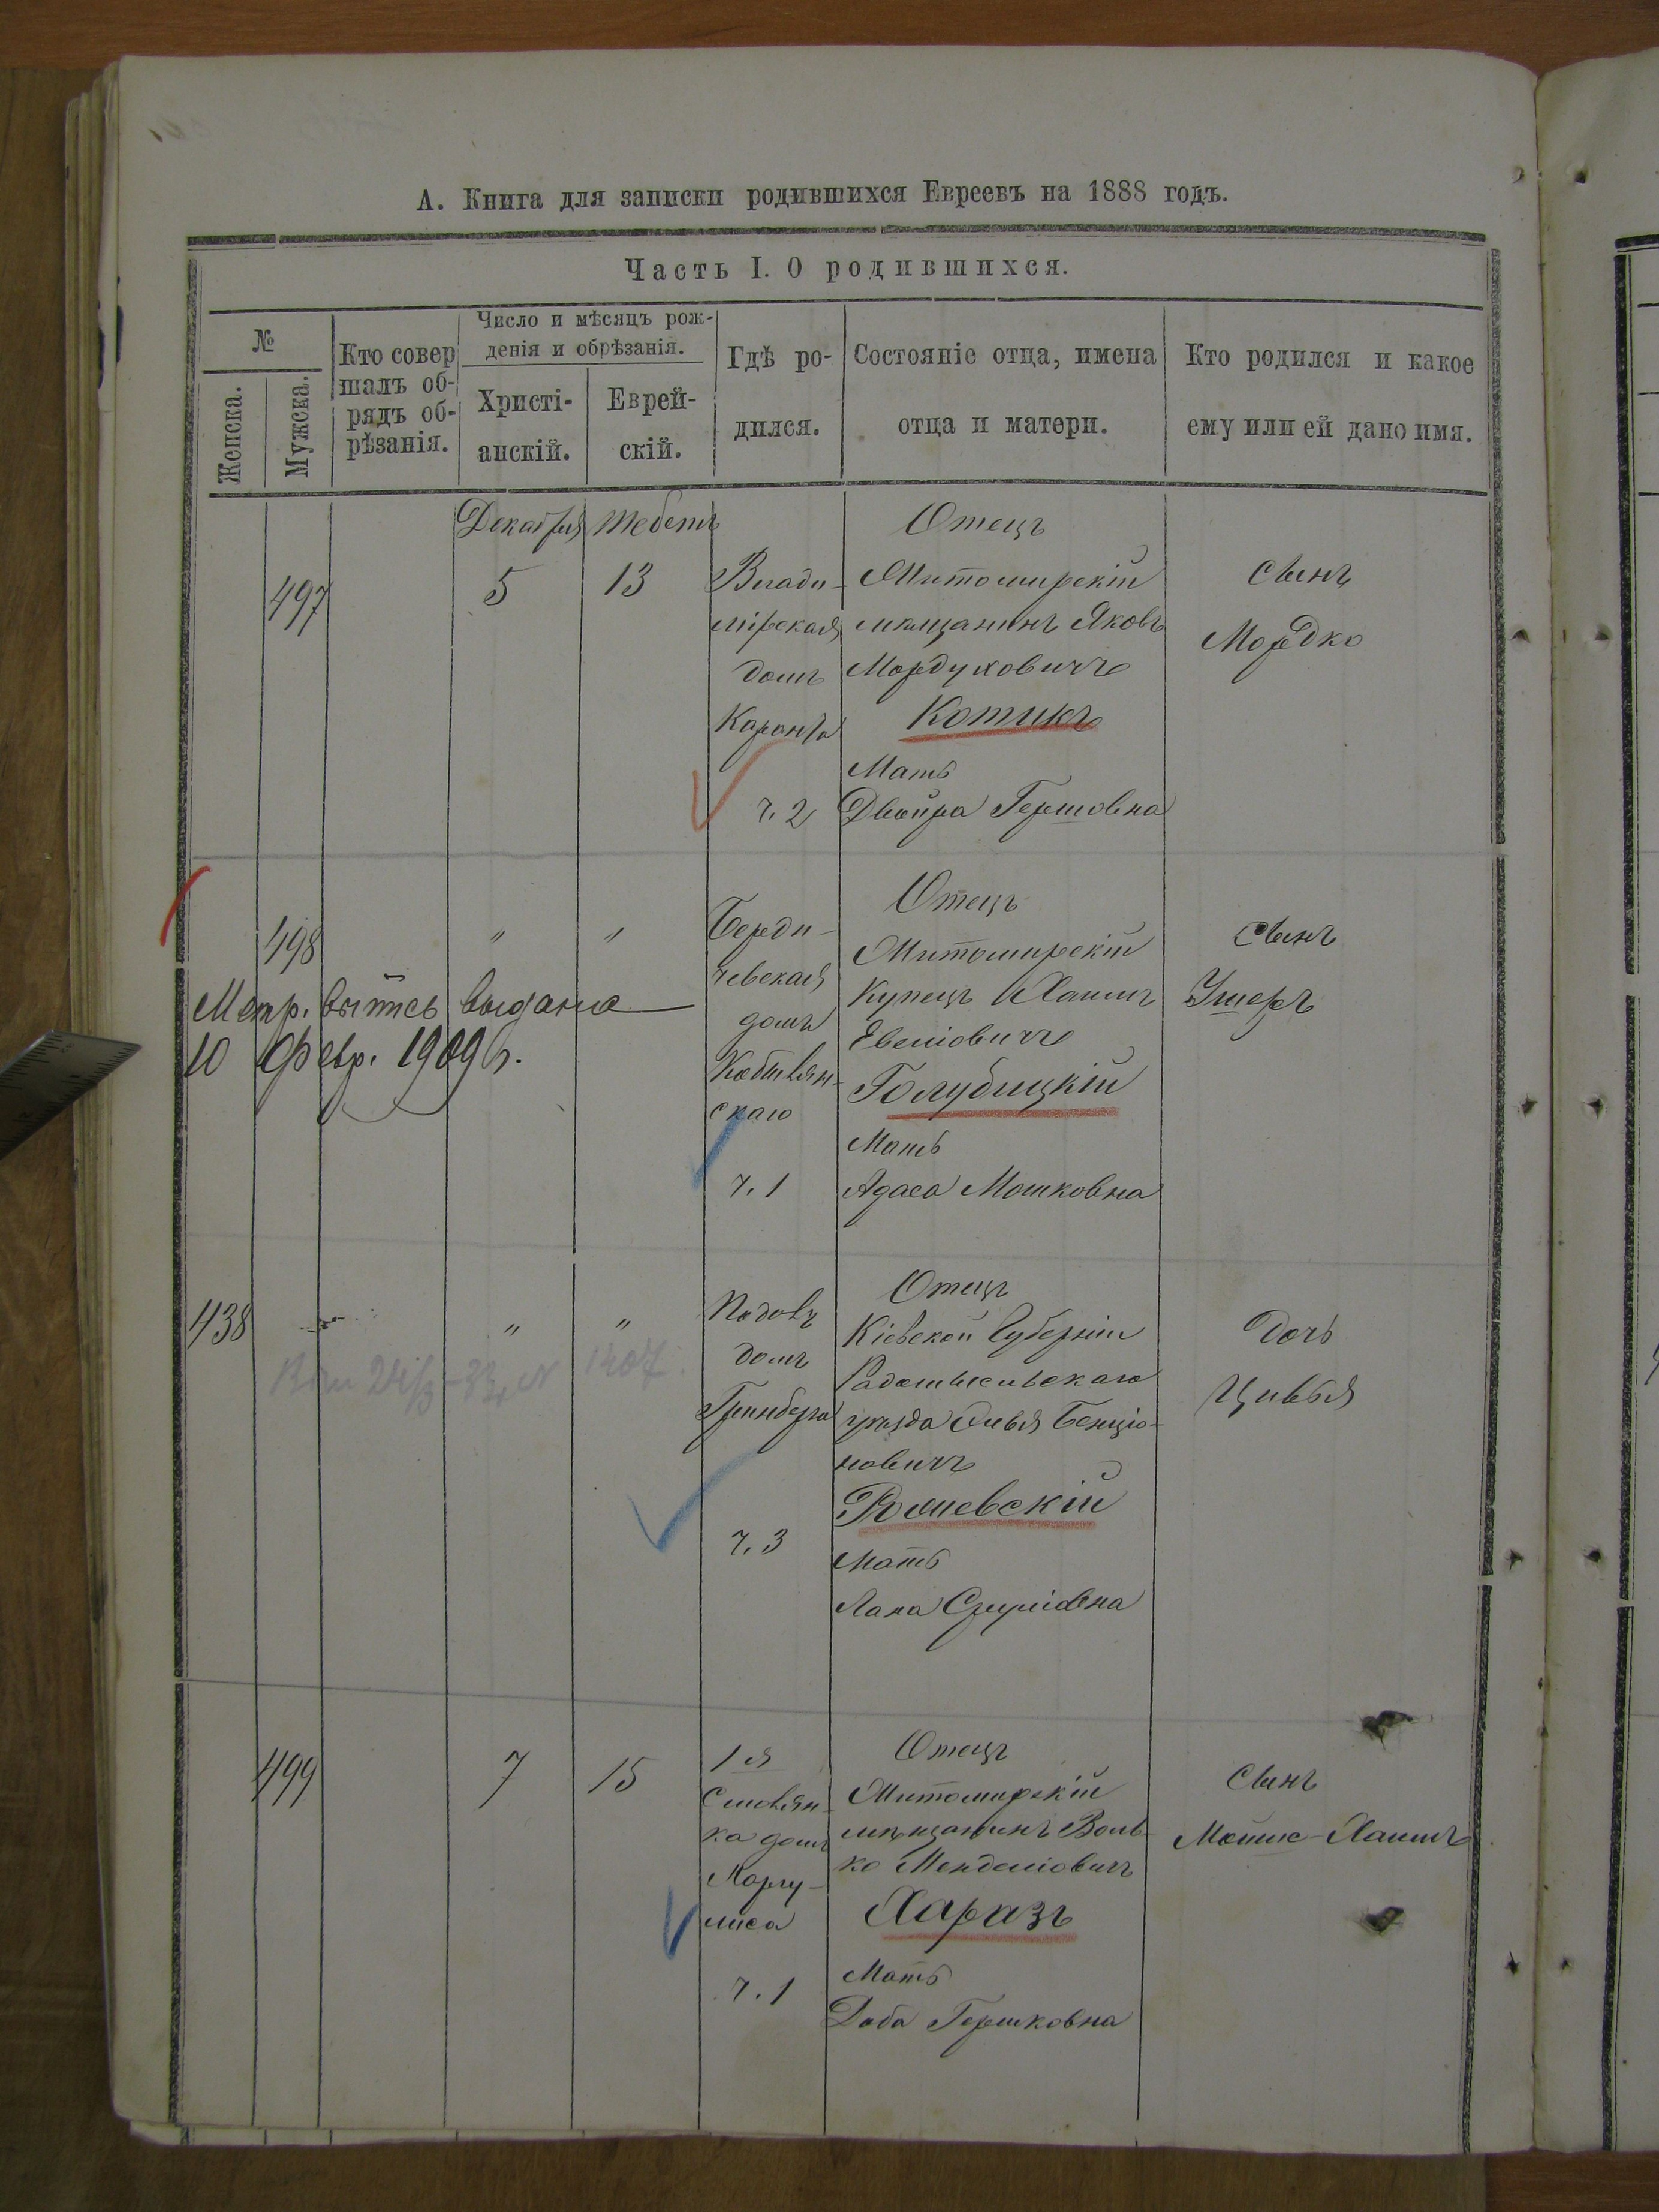 А. Книга для записки родившихся Евреевъ на 1888 годъ.
Часть I. О родившихся.
№
Женска.
Мужска.
Кто совер
шалъ об-
рядъ об-
рѣзанія.
Число и мѣсяцъ рож-
денія и обрѣзанія.
Христі-
анскій.
Еврей-
скій.
Гдѣ ро-
дился.
Состояніе отца, имена
отца и матери.
Кто родился и какое
ему или ей дано имя.
Декабря
Тебетъ
497
5
13
Влади-
мірская
домъ
ч. 2
Отецъ
Житомирскій
мѣщанинъ Яковъ
Мордуховичъ
Котикъ
Мать
Двойра Гершовна
сынъ
Мордко
498
"
"
Берди-
чевская
домъ
скаго
ч. 1
Отецъ
Житомирскій
Купецъ Хаимъ
Евеліовичъ
Голубицкій
Мать
Адаса Мошковна
сынъ
Ушеръ
Метр. выпись выдана
10 Февр. 1909 г.
438
"
"
домъ
Гринберга
ч. 3
Отецъ
Кіевской Губерніи
Радомысльскаго
уѣзда Бенціо-
новичъ
Мать
Дочь
Цивья
499
7
15
1я
Словян-
ка домъ
Маргу-
лиса
ч. 1
Отецъ
Житомирскій
мѣщанинъ Воль
ко Менделіовичъ
Харазъ
Мать
Доба Гершковна
сынъ
Мойше-Хаимъ